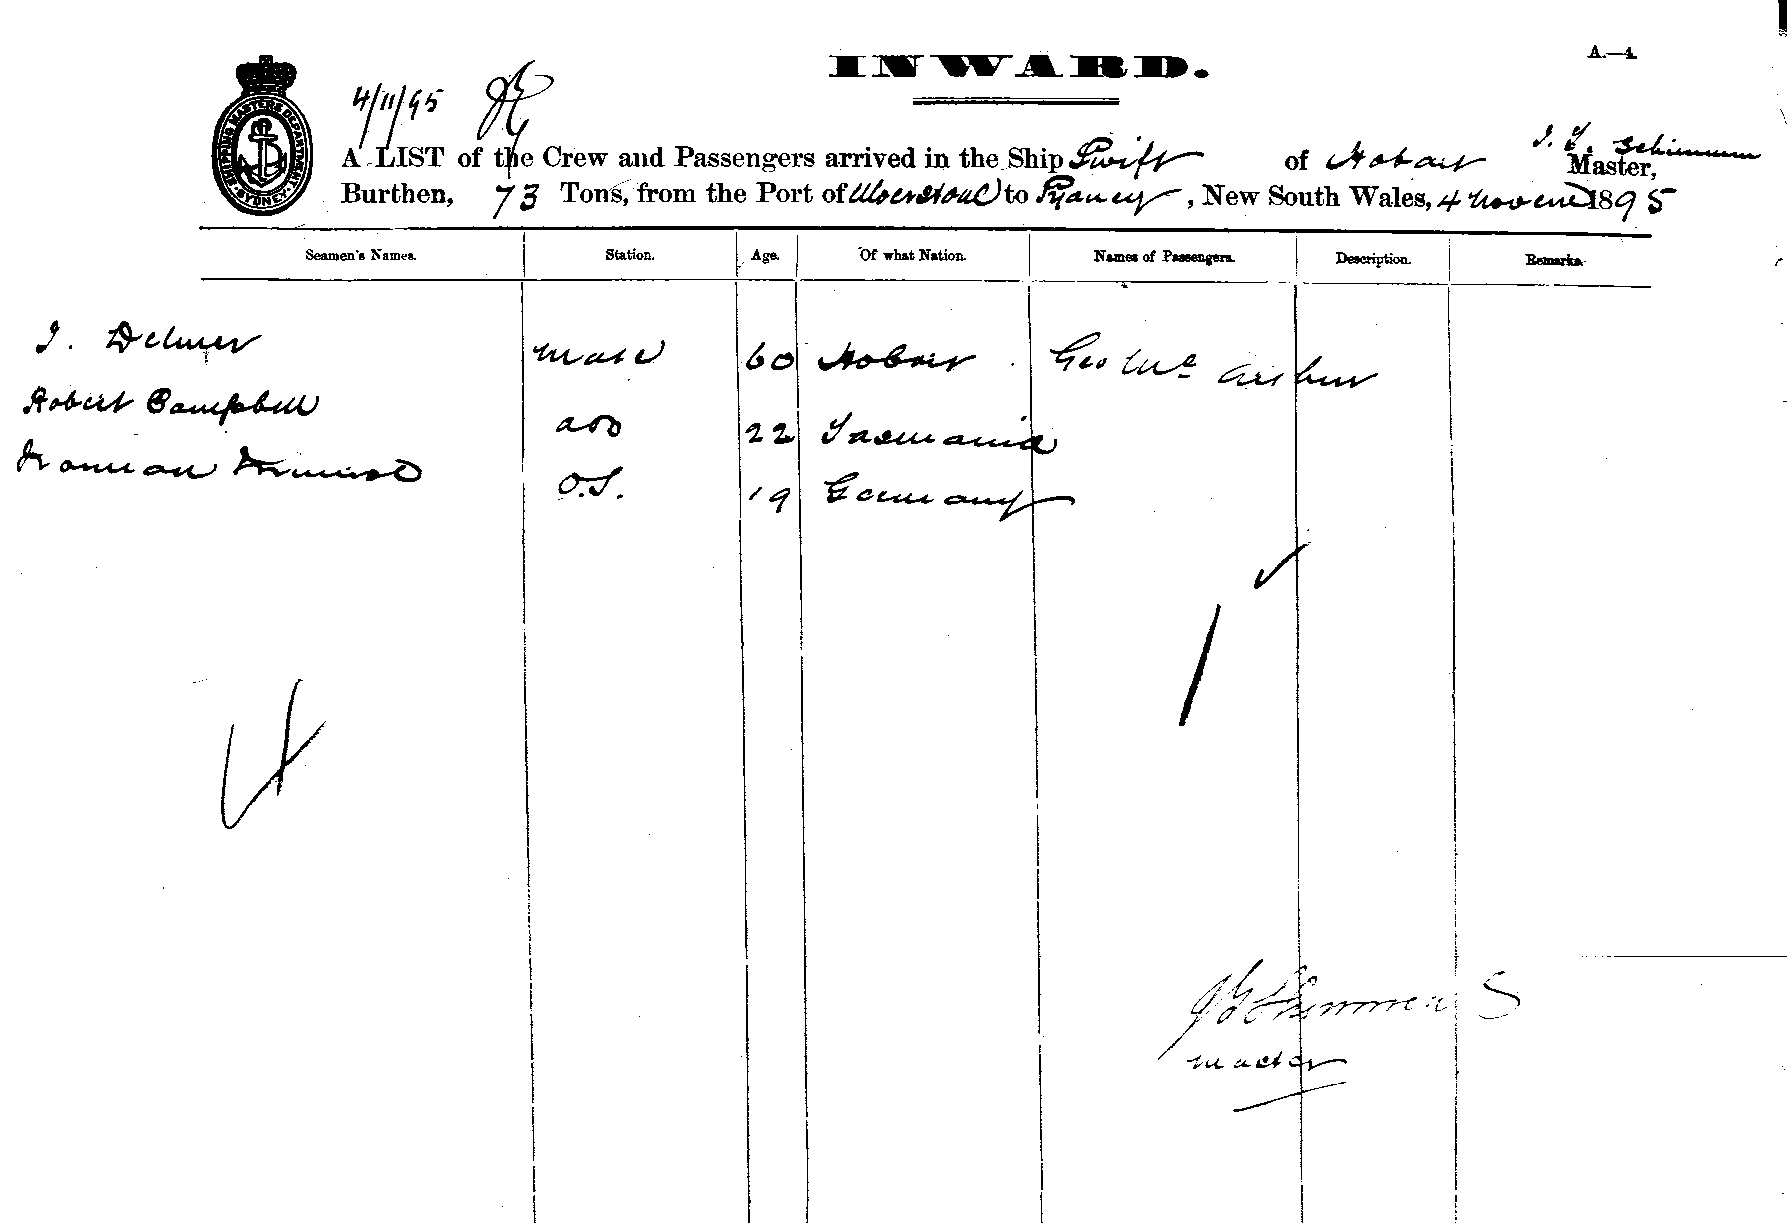 INWARD.
A.—4
SHIPPING MASTERS DEPARTMENT SYDNEY
4/11/95
A LIST of the Crew and Passengers arrived in the Ship Swift of Hobart Master,
Burthen, 73 Tons, from the Port of to Sydney, New South Wales, 4 1895
Seamen's Names. Station. Age. Of what Nation. Names of Passengers. Description. Remarks.
Mate 60 Hobart Geo Mc Arthur
Robert Campbell 22 Tasmania
O.S. 19 Germany
Master